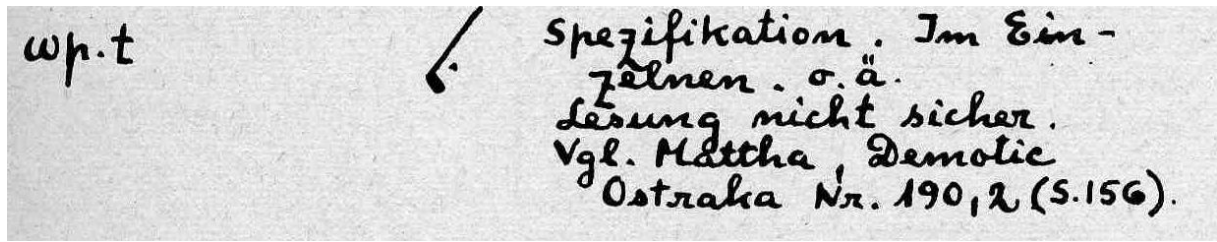 wp.t Spezifikation. Im Ein-
zelnen. o.ä.
Lesung nicht sicher.
Vgl. Mattha, Demotic
Ostraka Nr. 190,2 (S.156).